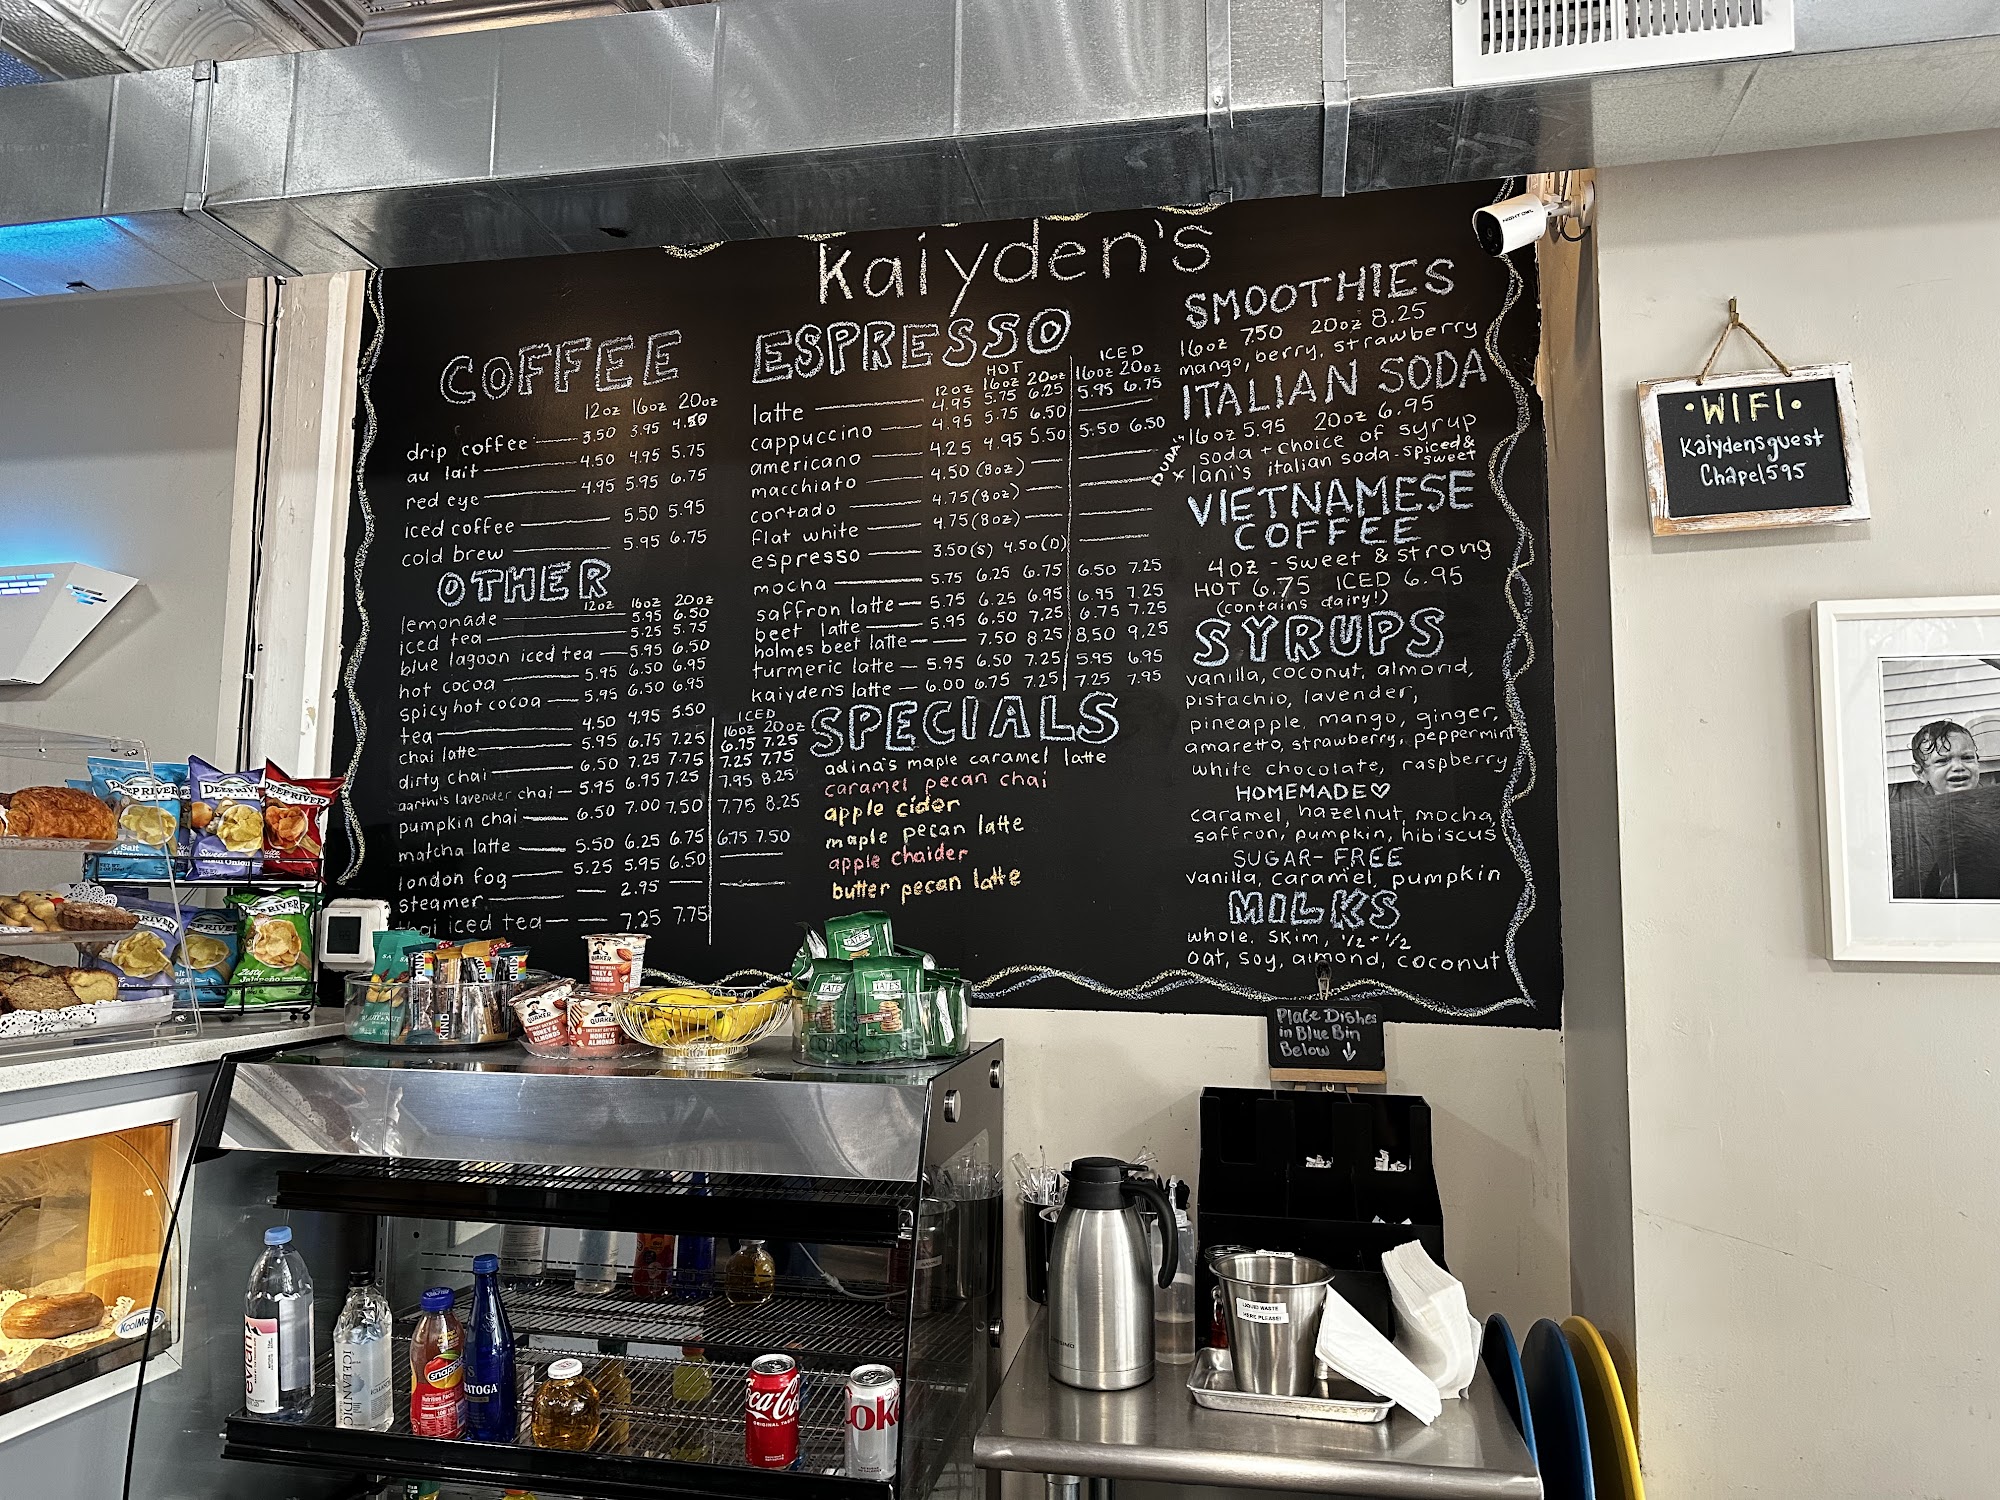 Kaiyden's
COFFEE
12oz 16oz 20oz
drip coffee 3.50 3.95 4.50
au lait 4.50 4.95 5.75
red eye 4.95 5.95 6.75
iced coffee 5.50 5.95
cold brew 5.95 6.75
OTHER
12oz 16oz 20oz
lemonade 5.95 6.50
iced tea 5.25 5.75
blue lagoon iced tea 5.95 6.50
hot cocoa 5.95 6.50 6.95
spicy hot cocoa 5.95 6.50 6.95
ICED
16oz 20oz
tea 4.50 4.95 5.50
chai latte 5.95 6.75 7.25 6.75 7.25
dirty chai 6.50 7.25 7.75 7.25 7.75
aarthi's lavender chai 5.95 6.95 7.25 7.95 8.25
pumpkin chai 6.50 7.00 7.50 7.75 8.25
matcha latte 5.50 6.25 6.75 6.75 7.50
london fog 5.25 5.95 6.50
steamer 2.95
thai iced tea 7.25 7.75
ESPRESSO
HOT ICED
12oz 16oz 20oz 16oz 20oz
latte 4.95 5.75 6.25 5.95 6.75
cappuccino 4.95 5.75 6.50
americano 4.25 4.95 5.50 5.50 6.50
macchiato 4.50 (8oz)
cortado 4.75 (8oz)
flat white 4.75 (8oz)
espresso 3.50(S) 4.50(D)
mocha 5.75 6.25 6.75 6.50 7.25
saffron latte 5.75 6.25 6.95 6.95 7.25
beet latte 5.95 6.50 7.25 6.75 7.25
holmes beet latte 7.50 8.25 8.50 9.25
turmeric latte 5.95 6.50 7.25 5.95 6.95
kaiyden's latte 6.00 6.75 7.25 7.25 7.95
SPECIALS
adina's maple caramel latte
caramel pecan chai
apple cider
maple pecan latte
apple chaider
butter pecan latte
SMOOTHIES
16oz 7.50 20oz 8.25
mango, berry, strawberry
ITALIAN SODA
16oz 5.95 20oz 6.95
soda + choice of syrup
lani's italian soda - spiced &
sweet
VIETNAMESE
COFFEE
4oz - sweet & strong
HOT 6.75 ICED 6.95
(contains dairy!)
SYRUPS
vanilla, coconut, almond,
pistachio, lavender,
pineapple, mango, ginger,
amaretto, strawberry, peppermint
white chocolate, raspberry
HOMEMADE♡
caramel, hazelnut, mocha,
saffron, pumpkin, hibiscus
SUGAR-FREE
vanilla, caramel, pumpkin
MILKS
whole, skim, 1/2 + 1/2
oat, soy, almond, coconut
NIGHT OWL
•WIFI•
Kaiydensguest
Chapel595
Place Dishes
in Blue Bin
Below ↓
DEEP RIVER
DEEP RIVER
DEEP RIVER
Salt
Sweet
Maui Onion
DEEP RIVER
Zesty
Jalapeño
KIND
KIND
QUAKER
HONEY &
ALMONDS
QUAKER
QUAKER
HONEY &
ALMONDS
TATE'S
TATE'S
TATE'S
COOKIES
KoolMore
evian
ICELANDIC
Snapple
Coca-Cola
ORIGINAL TASTE
Coke
LIQUID WASTE
HERE PLEASE!